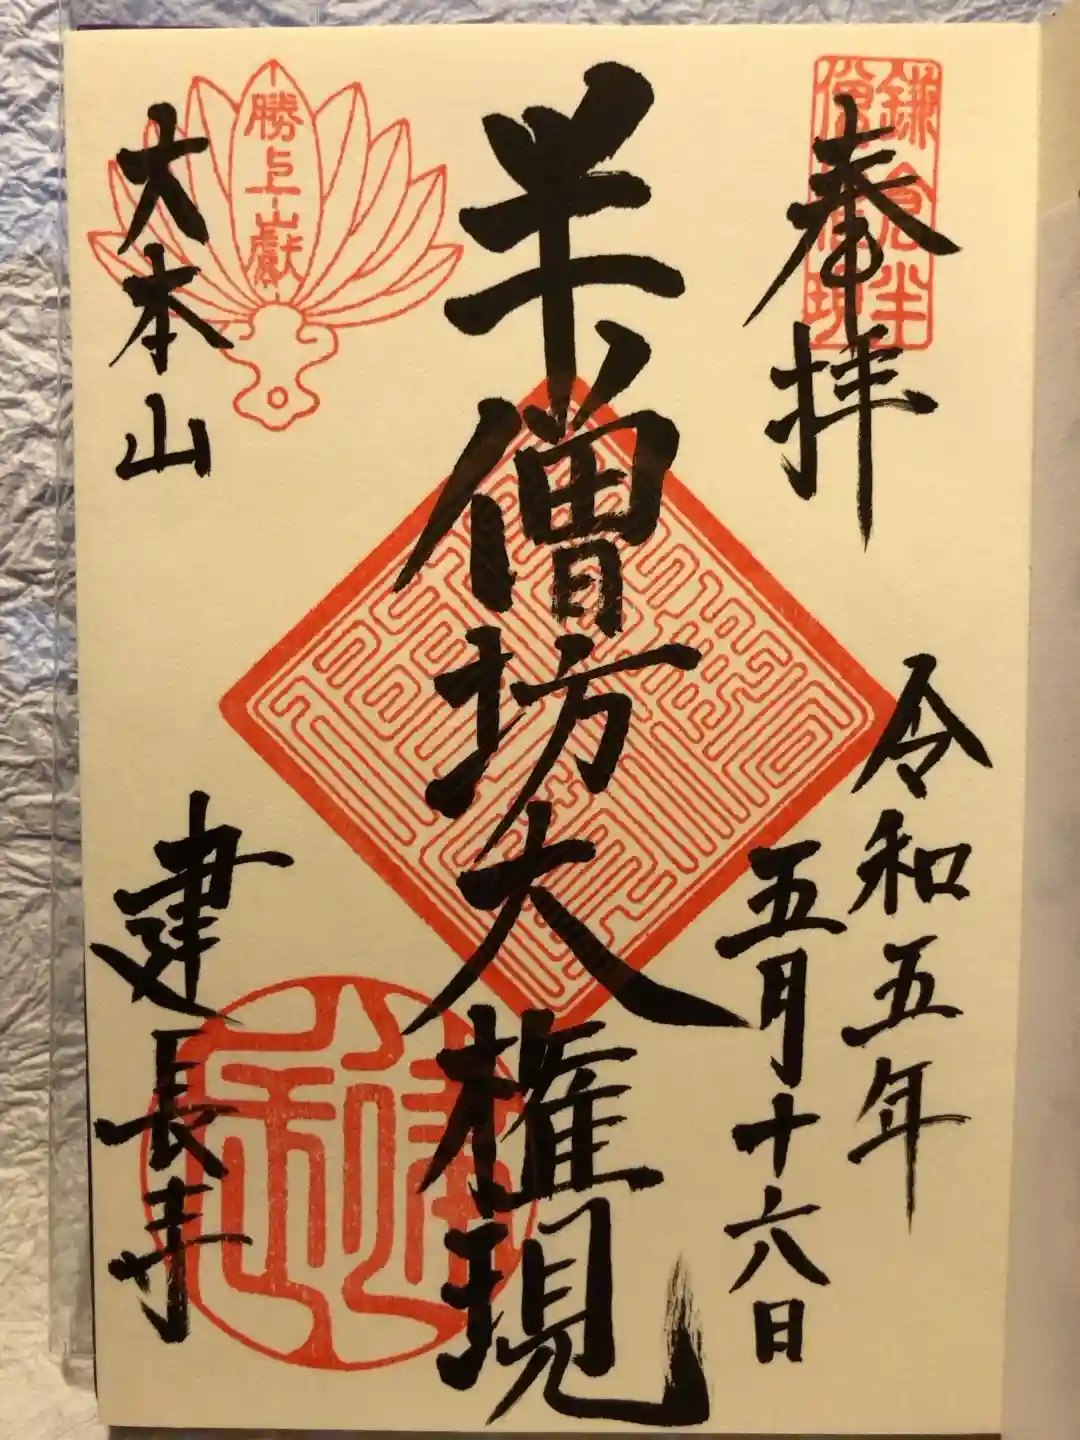 奉拝
鎌倉半
僧坊権現
令和五年
五月十六日
半僧坊大権現
勝上山献
大本山
建長寺